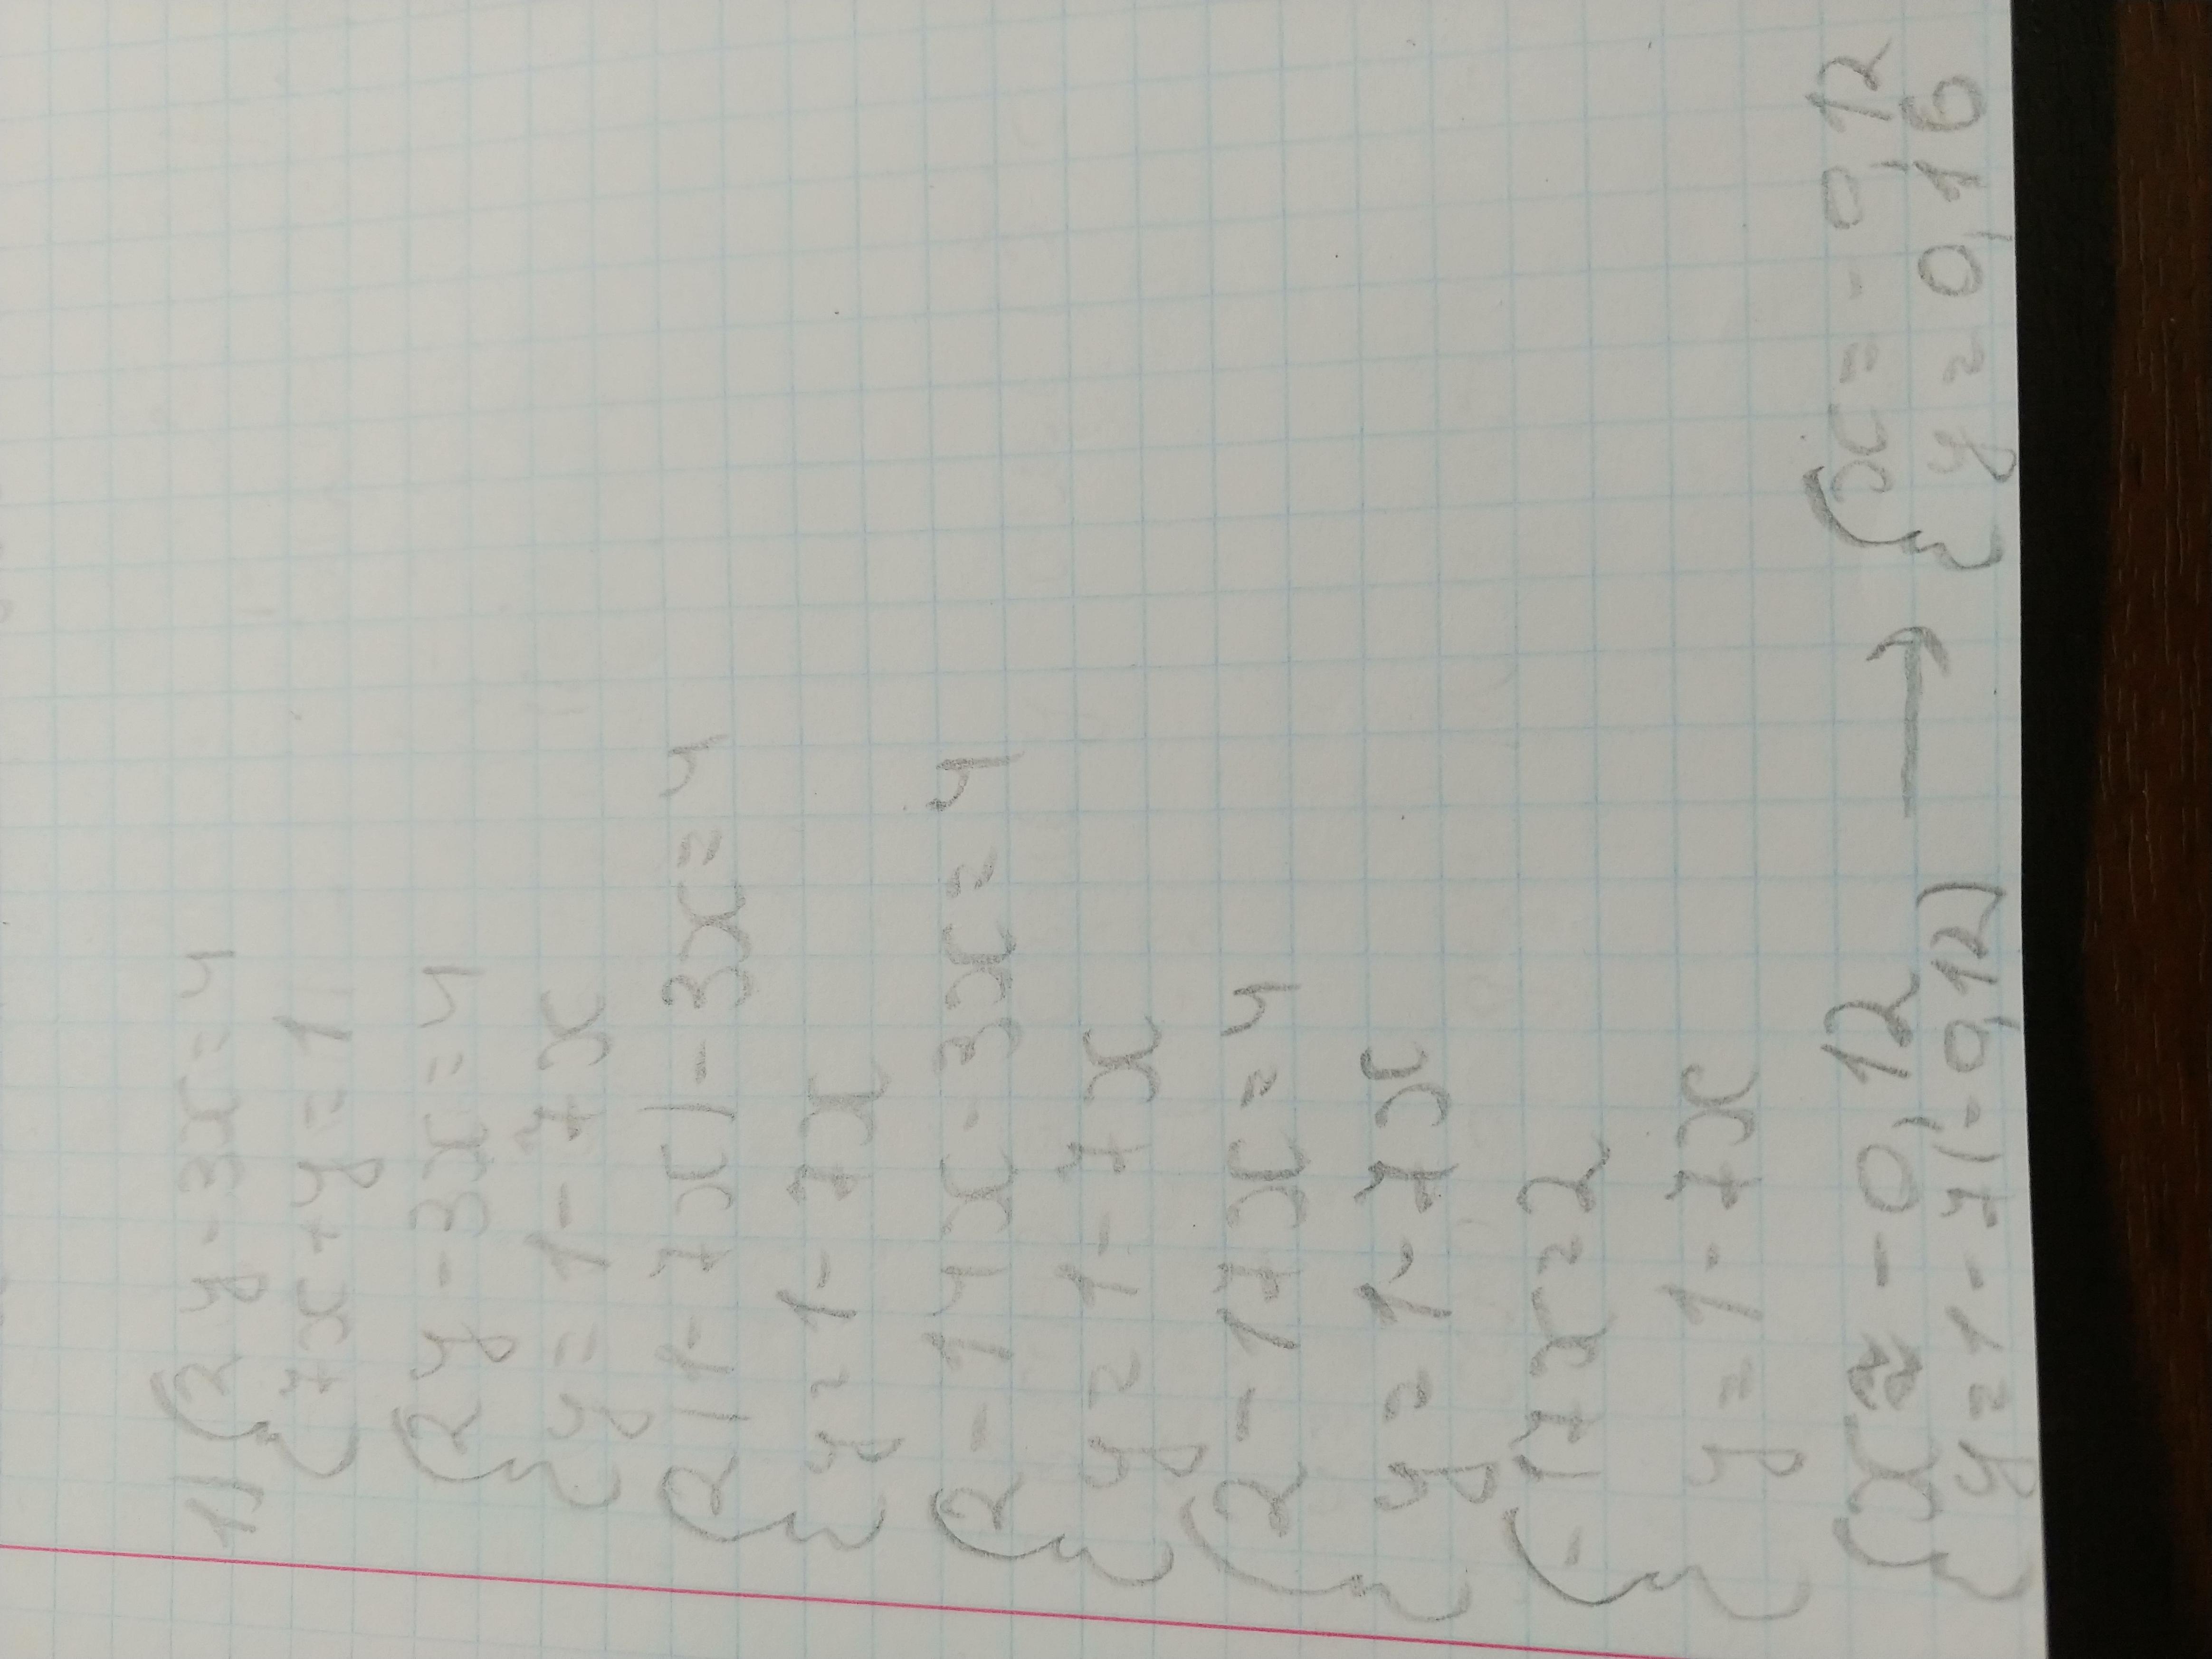 1) { 2y - 3x = 4
7x + y = 1
{ 2y - 3x = 4
y = 1 - 7x
{ 2(1 - 7x) - 3x = 4
y = 1 - 7x
{ 2 - 14x - 3x = 4
y = 1 - 7x
{ 2 - 17x = 4
y = 1 - 7x
{ -17x = 2
y = 1 - 7x
{ x ≈ -0,12 → { x = -0,12
y = 1 - 7(-0,12) y = 0,16